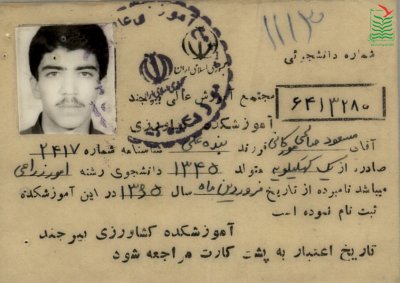 ۱۱۱۳
شماره دانشجوئی
جمهوری اسلامی ایران
مجتمع آموزش عالی بیرجند
۶۴۱۳۲۸۰
آموزشکده کشاورزی
آقای مسعود صالحی فرزند بنده علی شناسنامه شماره ۲۴۱۷
صادره از کهگیلویه متولد ۱۳۴۵ دانشجوی رشته امور زراعی
میباشد نامبرده از تاریخ فروردین ماه سال ۱۳۶۵ در این آموزشکده
ثبت نام نموده است
آموزشکده کشاورزی بیرجند
تاریخ اعتبار به پشت کارت مراجعه شود